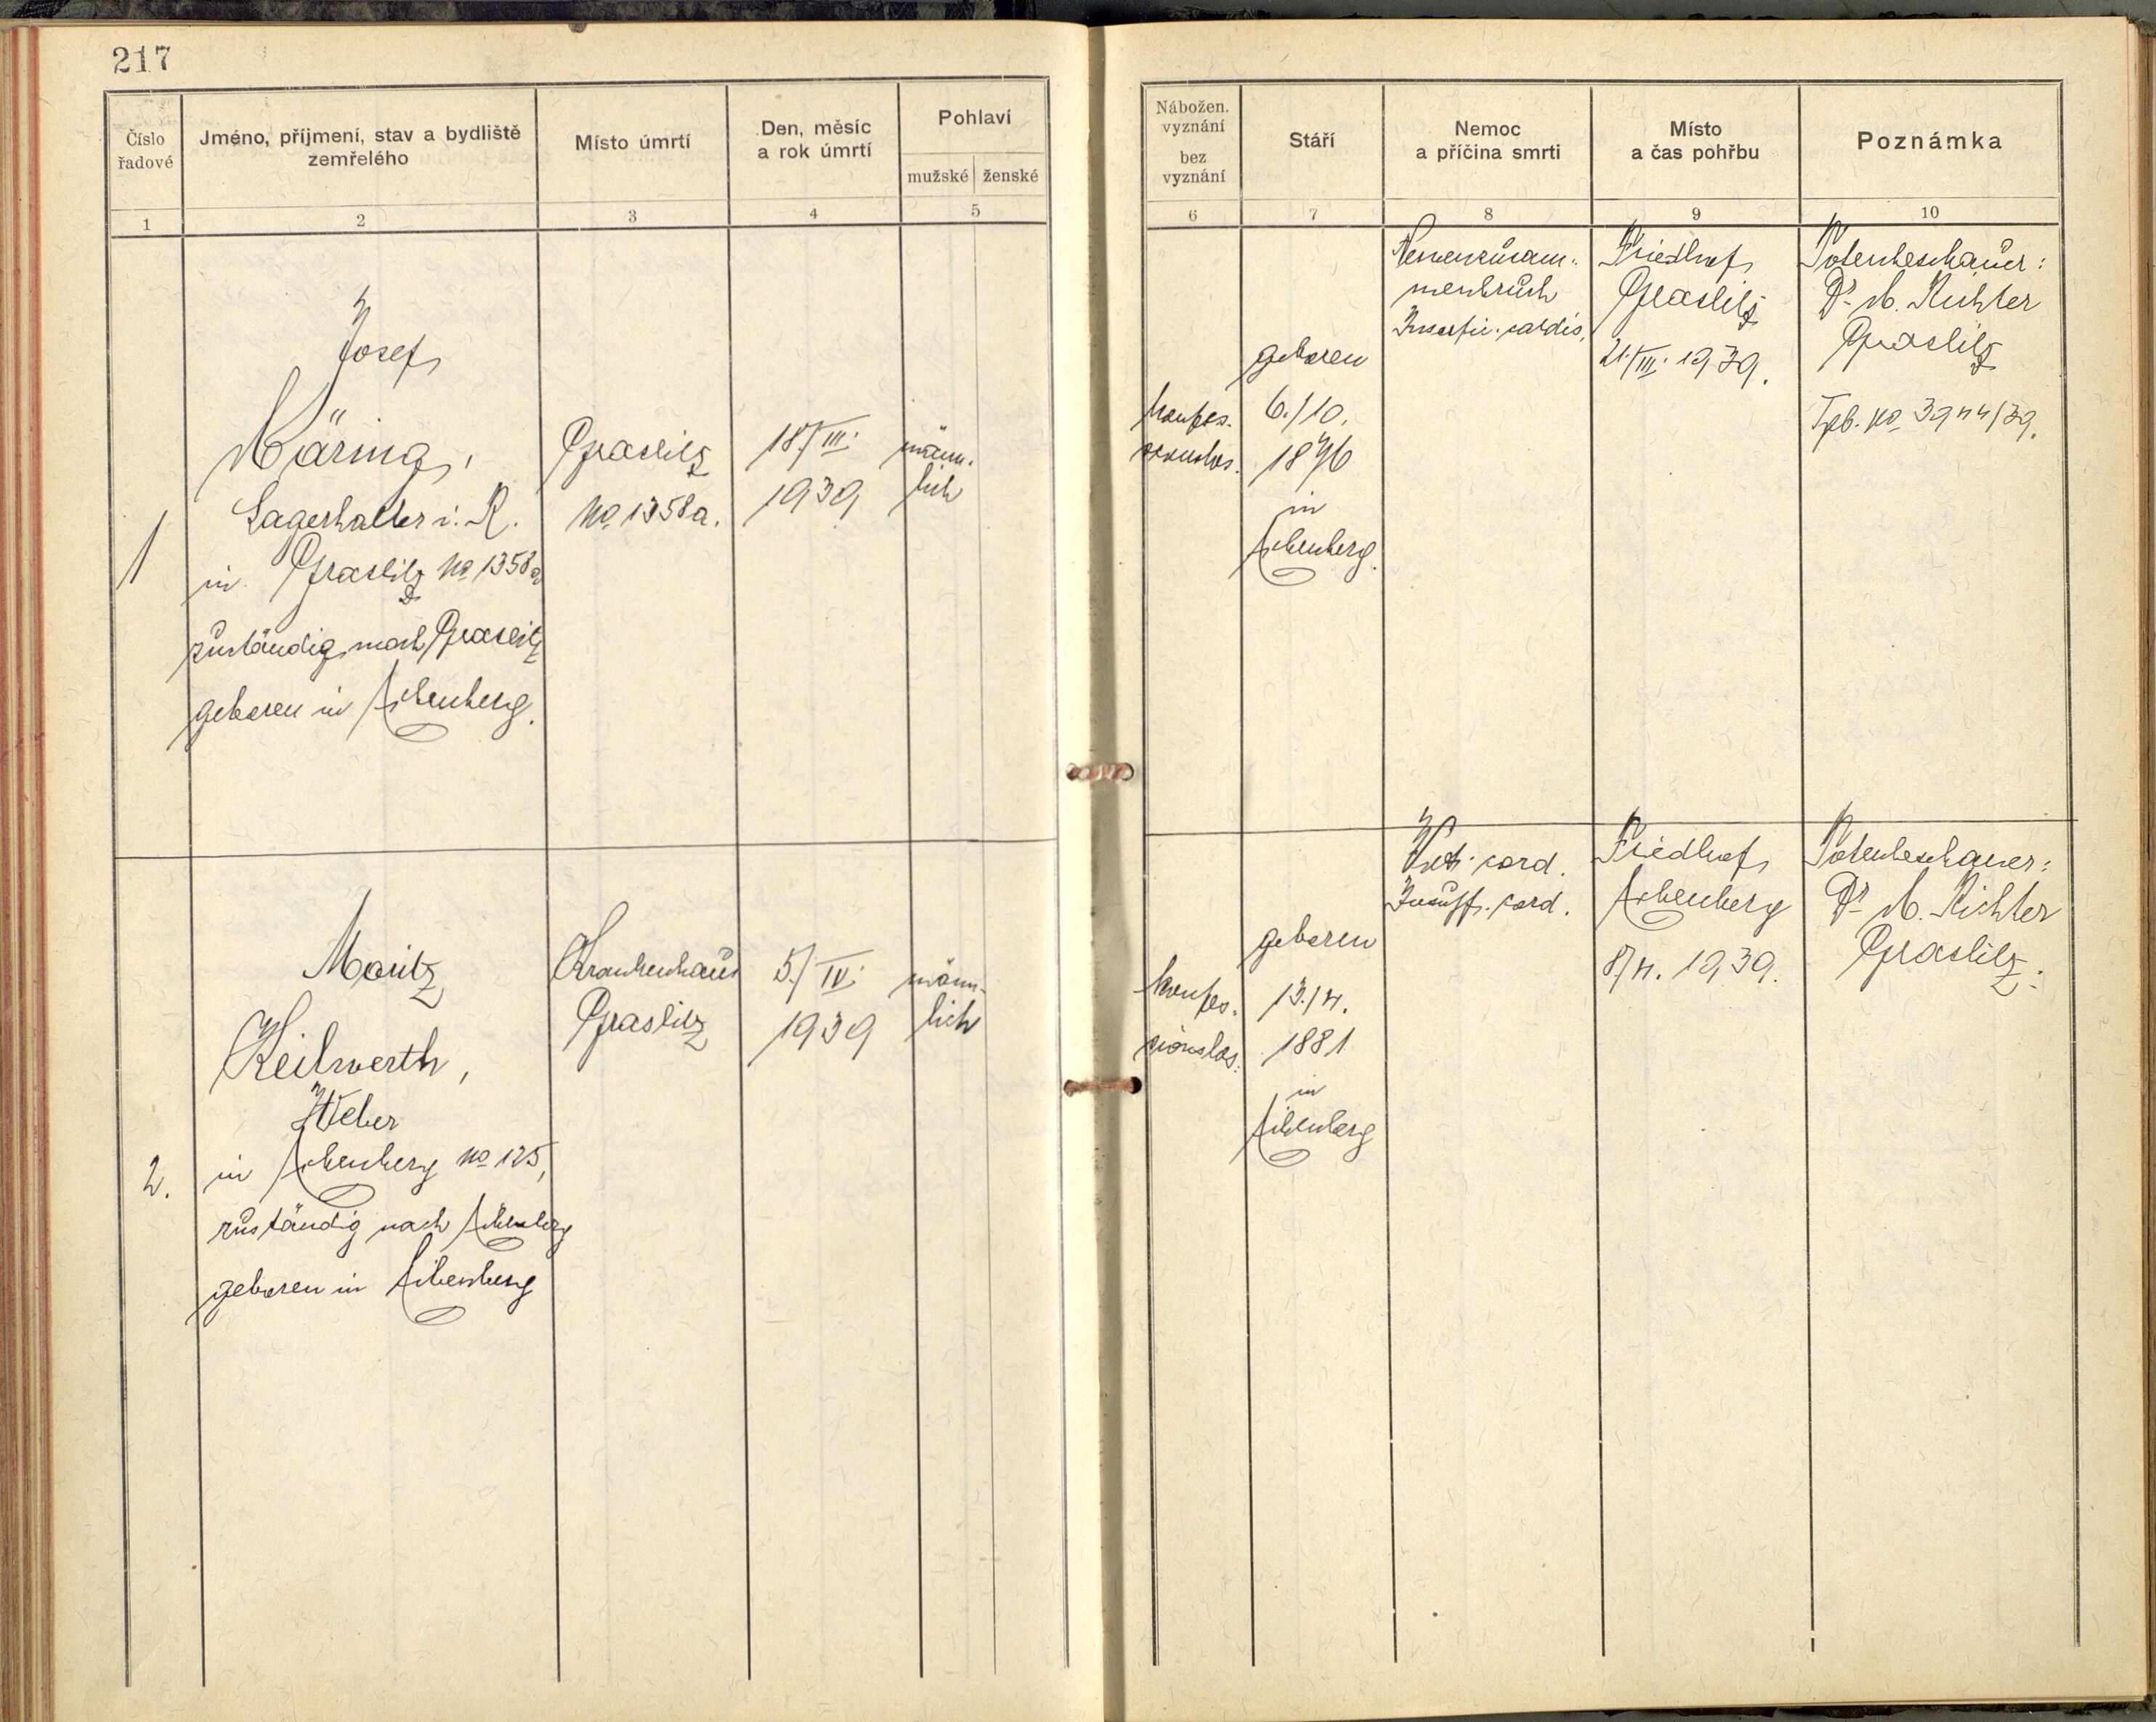 217
Číslo
řadové
Jméno, příjmení, stav a bydliště
zemřelého
Místo úmrtí
Den, měsíc
a rok úmrtí
Pohlaví
mužské ženské
1 2 3 4 5
Josef
Märing,
Lagerhalter i. R.
in Graslitz No 1358a
zuständig nach Graslitz
geboren in Eibenberg.
1
Graslitz
No. 1358a.
18./III.
1939
männ-
lich
Moritz
Keilwerth,
Weber
in Eibenberg No 125,
zuständig nach Eibenberg
geboren in Eibenberg
2.
Krankenhaus
Graslitz
5./IV.
1939
männ-
lich
Nábožen.
vyznání
bez
vyznání
Stáří
Nemoc
a příčina smrti
Místo
a čas pohřbu
Poznámka
6 7 8 9 10
konfes-
sionslos.
geboren
6./10.
1876
in
Eibenberg.
Nervenzusam-
menbruch
cordis.
Friedhof
Graslitz
21./III. 1939.
Totenbeschauer:
Dr. M. Richter
Graslitz
No 3944/39.
konfes-
sionslos.
geboren
13./4.
1881
in
Eibenberg
cord.
Insuff. cord.
Friedhof
Eibenberg
8/4. 1939.
Totenbeschauer:
Dr. M. Richter
Graslitz.